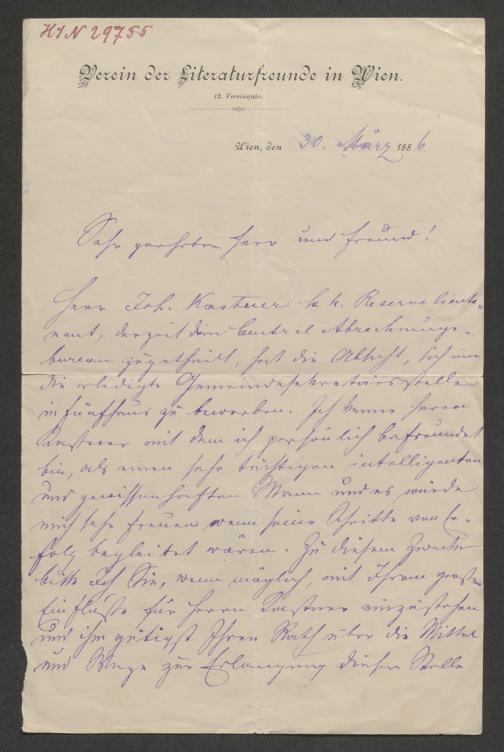 HIN 29755
Verein der Literaturfreunde in Wien.
12. Vereinsjahr.
Wien, den 30. März 1886
Sehr geehrter Herr und Freund!
Herr Joh. Kastner k. k. Reservelieute-
nant, derzeit dem Central Abrechnungs-
bureau zugetheilt, hat die Absicht, sich um
die erledigte Gemeindesekretärsstelle
in Fünfhaus zu bewerben. Ich kenne Herrn
Kastner mit dem ich persönlich befreundet
bin, als einen sehr tüchtigen intelligenten
und gewissenhaften Mann und es würde
mich sehr freuen wenn seine Schritte von Er-
folg begleitet wären. Zu diesem Zwecke
bitte ich Sie, wenn möglich, mit Ihrem großen
Einflusse für Herrn Kastner einzustehen
und ihm gütigst Ihren Rath über die Mittel
und Wege zur Erlangung dieser Stelle